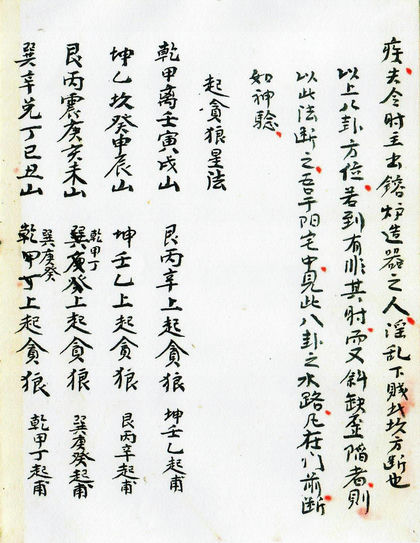 疾去令时主出镕炉造器之人淫乱下贱北坎方断也
以上八卦方位若到有非其时而又斜缺歪陷者则
以此法断之吾于阳宅中见此八卦之水路凡在门前断
如神验
起贪狼星法
乾甲离壬寅戌山 艮丙辛上起贪狼 坤壬乙起甫
坤乙坎癸申辰山 坤壬乙上起贪狼 艮丙辛起甫
艮丙震庚亥未山 巽庚癸上起贪狼 巽庚癸起甫
乾甲丁
巽辛兑丁巳丑山 乾甲丁上起贪狼 乾甲丁起甫
巽庚癸